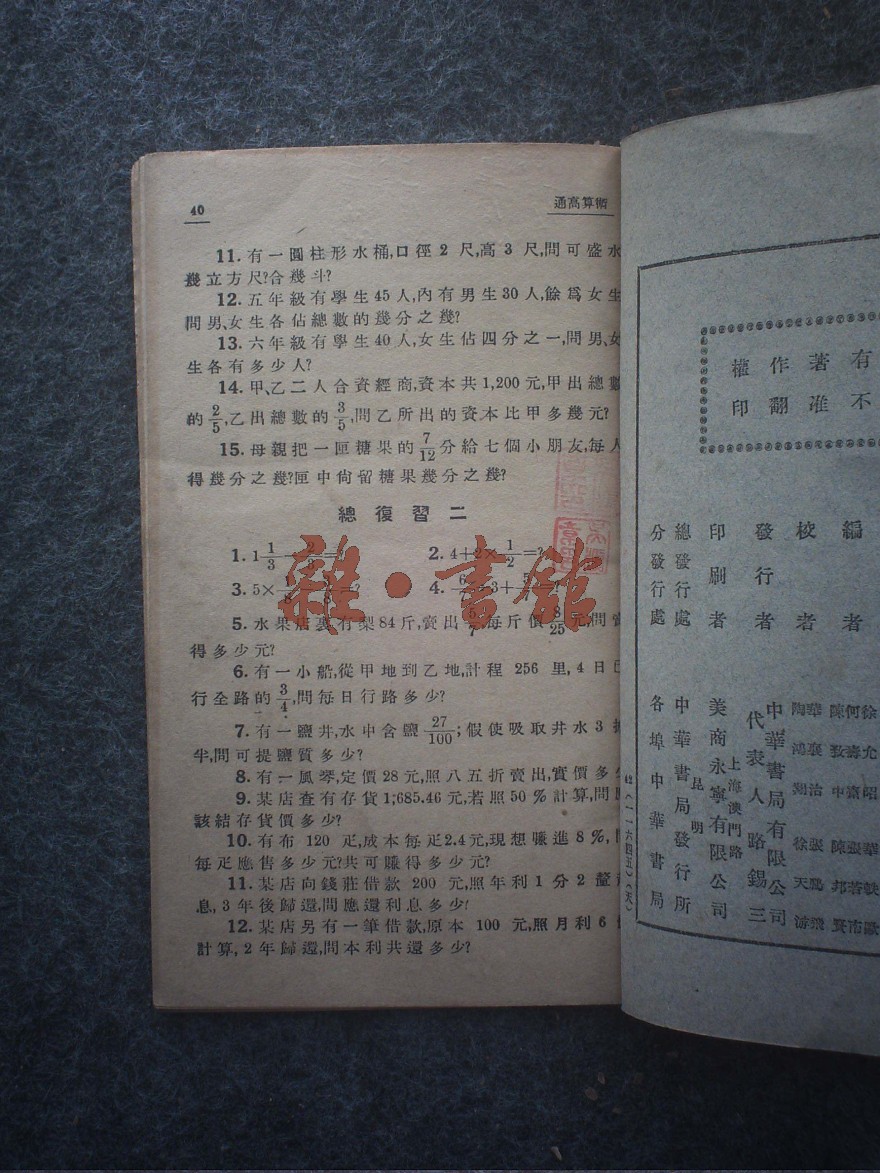 40
術算高通
11. 有一圓柱形水桶,口徑 2 尺,高 3 尺,問可盛水
幾立方尺?合幾斗?
12. 五年級有學生45人,內有男生30人,餘爲女生
問男、女生各佔總數的幾分之幾?
13. 六年級有學生40人,女生佔四分之一,問男、女
生各有多少人?
14. 甲、乙二人合資經商,資本共1,200元,甲出總數
的 2/5,乙出總數的 3/5,問乙所出的資本比甲多幾元?
15. 母親把一匣糖果的 7/12 分給七個小朋友,每人
得幾分之幾?匣中尙留糖果幾分之幾?
總復習二
1. 1 1/3
2. 4+2× 1/2 =?
3. 5×
4.
5. 水果店裏有梨84斤,賣出 5/7,每斤價 8/25 元,問賣
得多少元?
6. 有一小船,從甲地到乙地,計程 256 里,4日已
行全路的 3/4,問每日行路多少?
7. 有一鹽井,水中含鹽 27/100;假使吸取井水3
半,問可提鹽質多少?
8. 有一風琴,定價28元,照八五折賣出,實價多
9. 某店查有存貨1,685.46元,若照50%計算,問
該結存貨價多少?
10. 有布 120 疋,成本每疋2.4元,現想賺進8%,
每疋應售多少元?共可賺得多少元?
11. 某店向錢莊借款 200 元,照年利1分2釐
息,3年後歸還,問應還利息多少?
12. 某店另有一筆借款,原本 100 元,照月利6
計算,2年歸還,問本利共還多少?
雜·書館
有著作權
不准翻印
編者
校者
發行者
中華書局有限公司
代表人路錫三
印刷者
美商永寧有限公司
上海澳門路
總發行處
昆明
中華書局發行所
分發行處
各埠中華書局